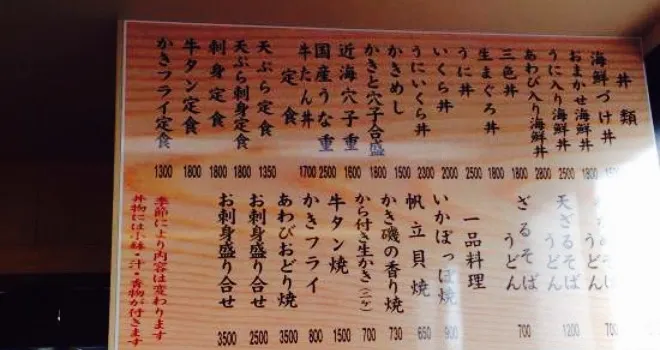 丼類
海鮮づけ丼
おまかせ海鮮丼 1800
うに入り海鮮丼 2500
あわび入り海鮮丼 2800
三色丼 1800
生まぐろ丼 1800
うに丼 2500
いくら丼 2000
うにいくら丼 2300
かきめし 1500
かきと穴子合盛 1800
近海穴子重 1600
国産うな重 2500
牛たん丼 1700
定食
天ぷら定食 1350
天ぷら刺身定食 1800
刺身定食 1800
牛タン定食 1800
かきフライ定食 1300
うどん 700
天ざるそば
うどん 1200
ざるそば
うどん 700
一品料理
いかぽっぽ焼 900
帆立貝焼 650
かき磯の香り焼 730
から付き生かき(二ヶ) 700
牛タン焼 1500
かきフライ 800
あわびおどり焼 3500
お刺身盛り合せ 2500
お刺身盛り合せ 3500
季節により内容は変わります
丼物には小鉢・汁・香物が付きます